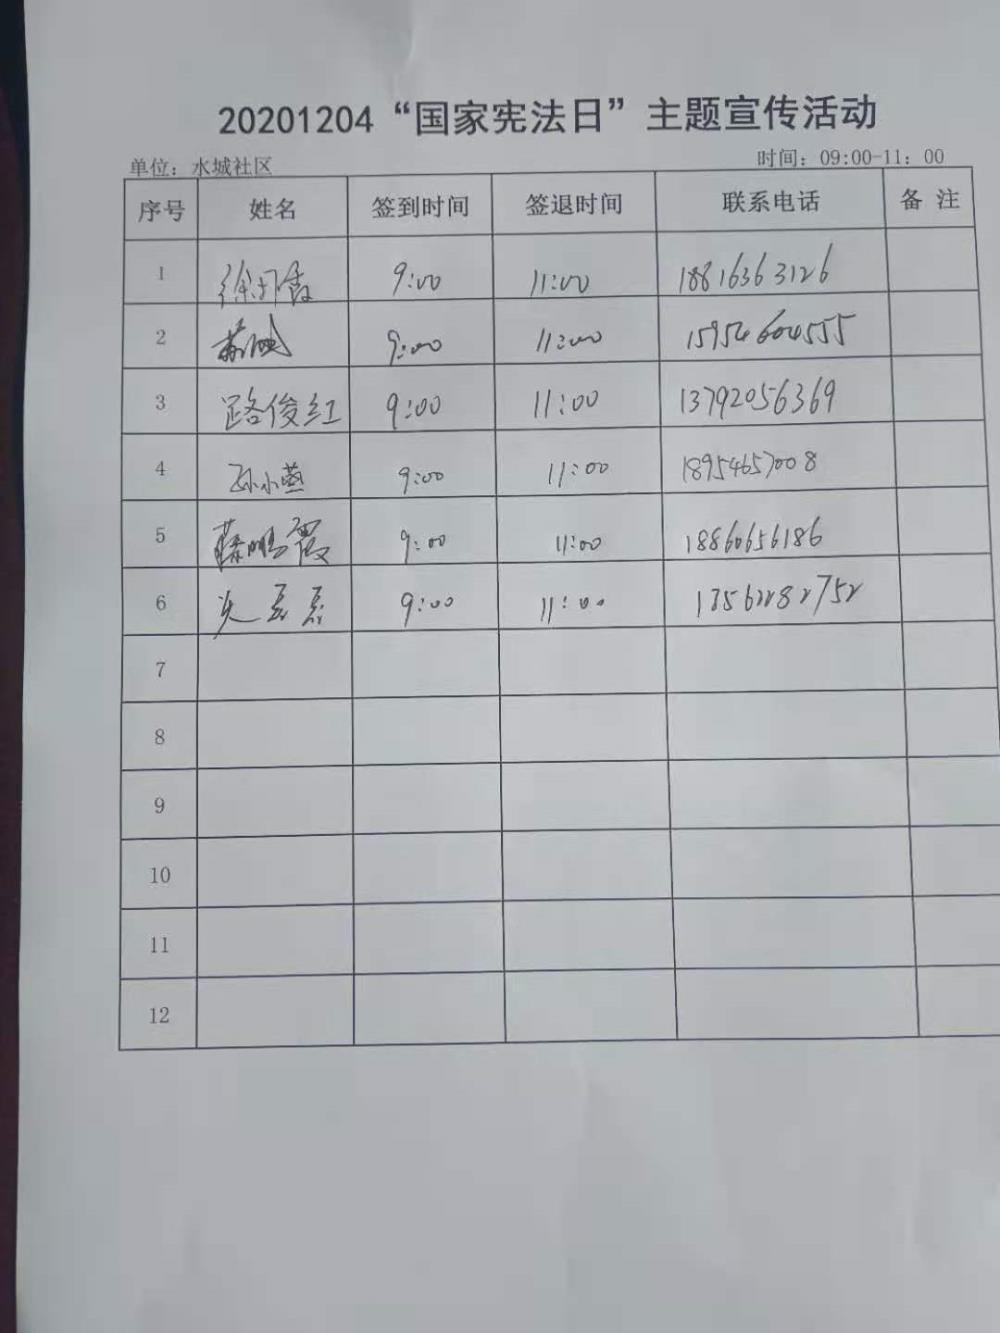 20201204“国家宪法日”主题宣传活动
单位：水城社区 时间：09:00-11：00
序号 姓名 签到时间 签退时间 联系电话 备 注
1 徐丹霞 9:00 11:00 18816363126
2 9:00 11:00 15954604555
3 路俊红 9:00 11:00 13792056369
4 孙小燕 9:00 11:00 18954657008
5 9:00 11:00 18860656186
6 9:00 11:00 13562282752
7
8
9
10
11
12